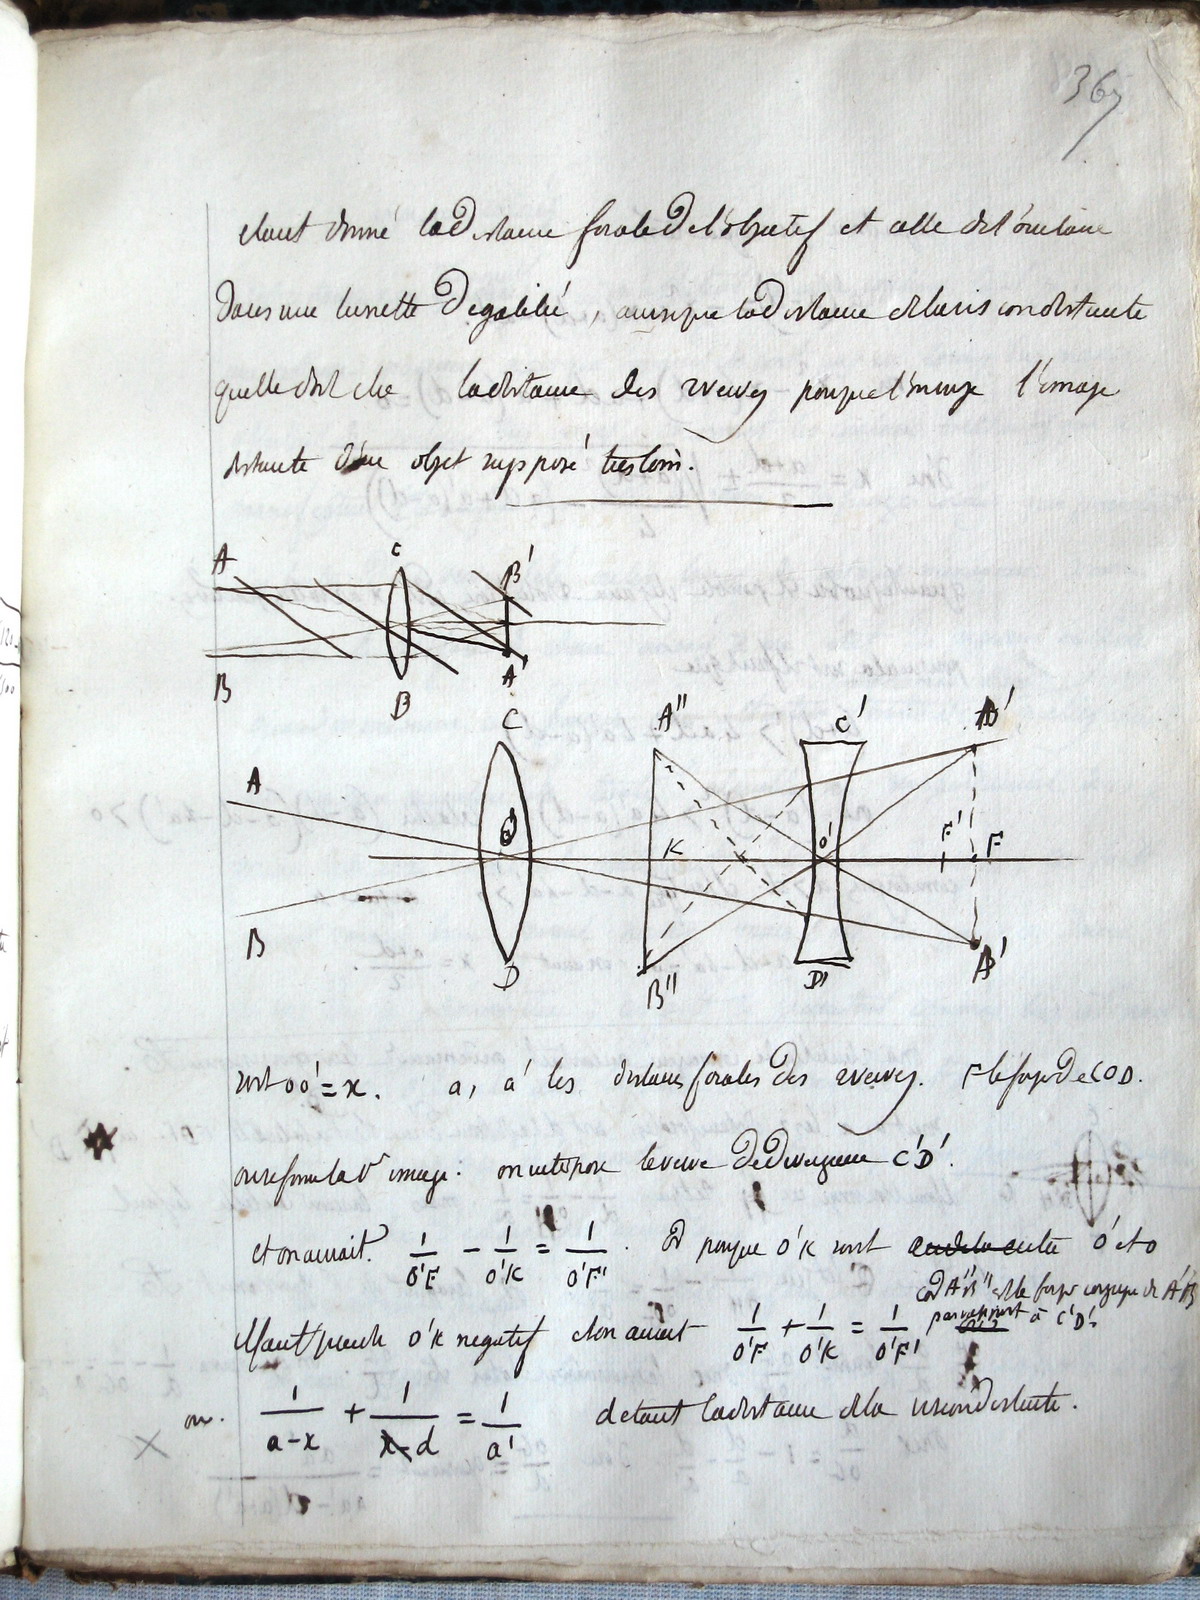 367
etant donné la distance focale de l'objectif et celle de l'oculaire
dans une lunette de galilé, ainsi que la distance de la vis on distincte
quelle doit etre la distance des verres pour que l'image
distincte d'un objet supposé tres loin.
A C B'
B B A'
C A" C' B'
A O K O' F' F
B D B" D' A'
soit OO' = x. a, a' les distances focales des verres. F le foyer de COD.
ou se forme la Vr image: on interpose le verre de divergence C'D'.
et on aurait. 1/O'F − 1/O'K = 1/O'F'. Or pour que O'K soit entre O' et O
et A"B" est le foyer conjugue de A'B'
par rapport à C'D'.
Il faut prendre O'K negatif et on aurait 1/O'F + 1/O'K = 1/O'F'
ou. 1/a−x + 1/d = 1/a' d etant la distance de la vision distincte.